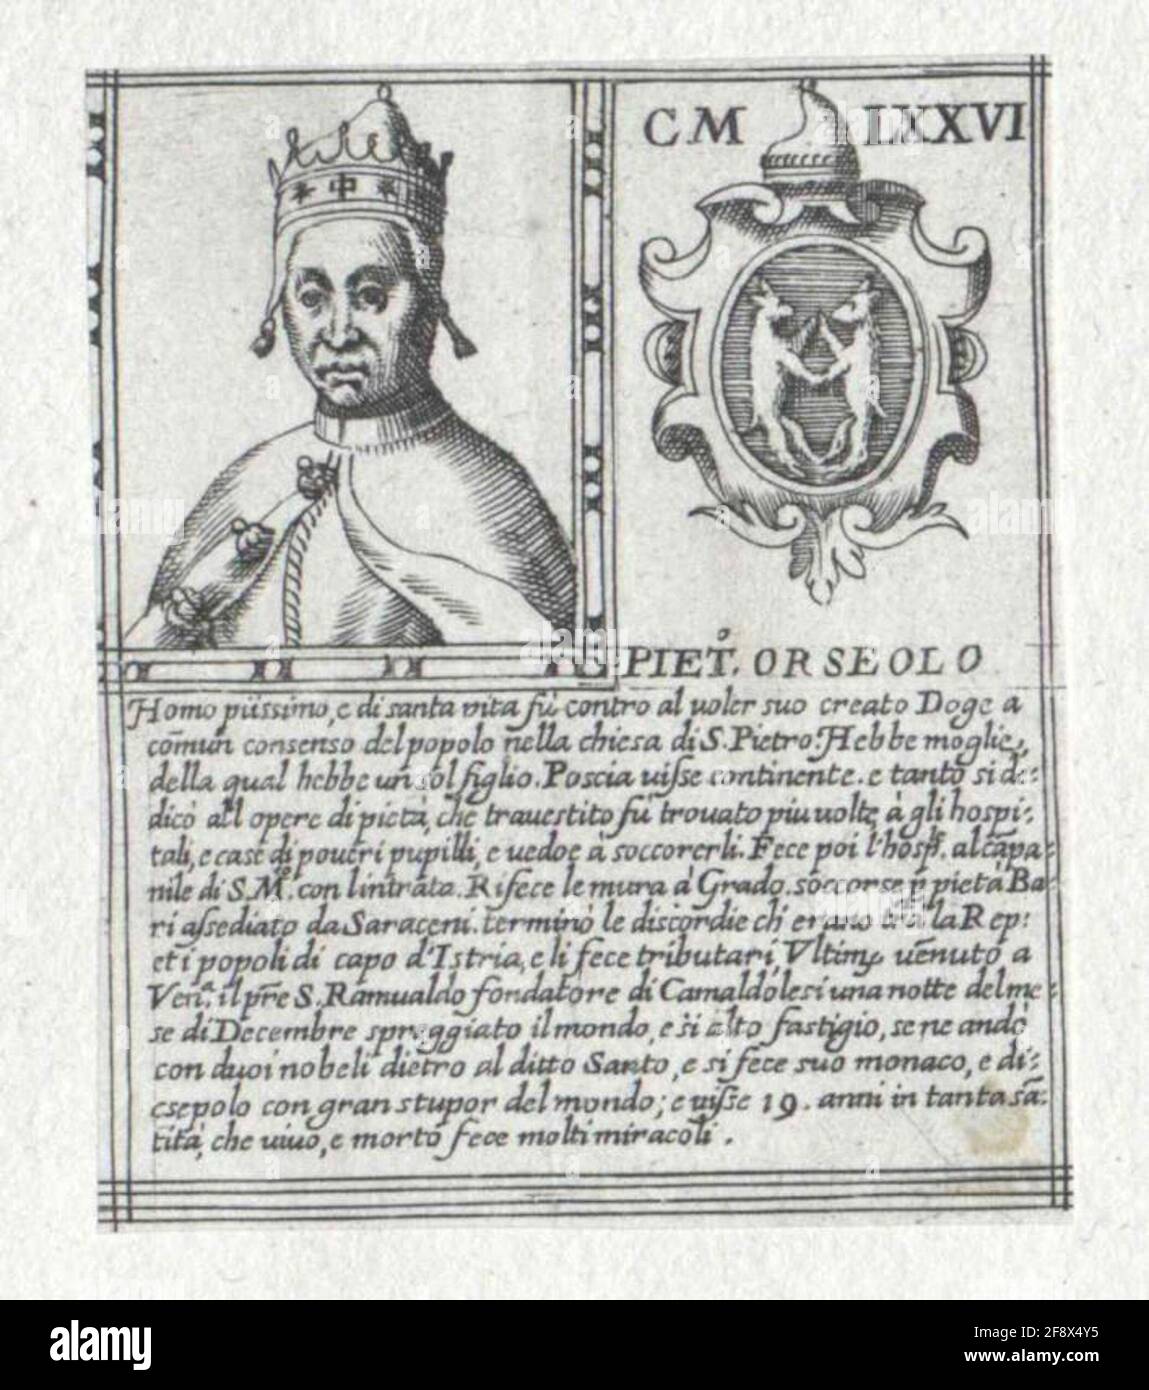 CM LXXVI
PIET.º ORSEOLO
Homo pijssimo, e di santa vita fù contro al uoler suo creato Doge a
cõmun consenso del popolo nella chiesa di S. Pietro. Hebbe moglie,
della qual hebbe un sol figlio. Poscia uisse continente. e tanto si de:
dicò all opere di pietà, che trauestito fù trouato piu uolte à gli hospi:
tali, e case di poueri pupilli, e uedoe à soccorerli. Fece poi l'hosp. al cãpa:
nile di S. Mº. con l intrata. Rifece le mura à Grado. soccorse p pietà Ba:
ri assediato da Saraceni. terminò le discordie ch' erano trà la Rep:
et i popoli di capo d'Istria, e li fece tributari, Vltimº uẽnuto a
Venª. il prẽ S. Ramualdo fondatore di Camaldolesi una notte del me:
se di Decembre spreggiato il mondo, e si alto fastigio, se ne andò
con duoi nobeli dietro al ditto Santo, e si fece suo monaco, e di:
csepolo con gran stupor del mondo; e uisse 19. anni in tanta sã:
tità, che uiuo, e morto fece molti miracoli.
alamy
alamy
Image ID: 2F8X4Y5
www.alamy.com